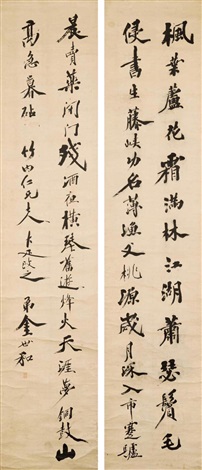 楓葉蘆花霜滿林江湖蕭瑟鬢毛
侵書生藤峽功名薄漁父桃源歲月深入市蹇驢
晨賣藥閉門殘酒夜橫琴舊遊烽火天涯夢銅鼓山
高急暮砧 仁兄大人 政之 弟金世和